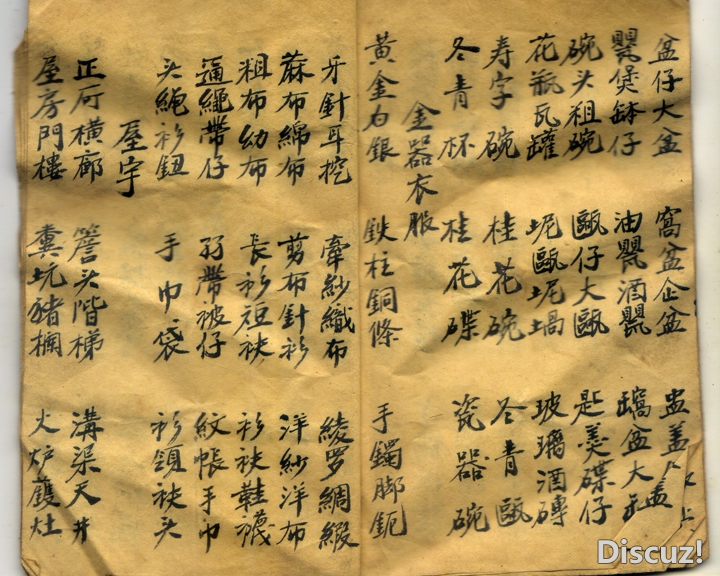 盆仔大盆 窩盆企盆 盅盖
甖煲缽仔 油甖酒甖 盆大
碗头粗碗 甌仔大甌 匙羹碟仔
花瓶瓦罐 坭甌坭堝 玻璃酒磚
寿字碗 桂花碗 冬青甌
冬青杯 桂花碟 瓷器碗
金器衣服
黃金白銀 鉄柱銅條 手鐲脚鈪
牙針耳挖 牽紗織布 綾罗綢緞
蔴布綿布 剪布針衫 洋紗洋布
粗布幼布 長衫短袂 衫袂鞋襪
繩帶仔 帶被仔 紋帳手巾
头繩衫鈕 手巾袋 衫領袂头
屋宇
正厅橫廊 簷头階梯 溝渠天井
屋房門樓 糞坑豬欄 火炉鑊灶
Discuz!